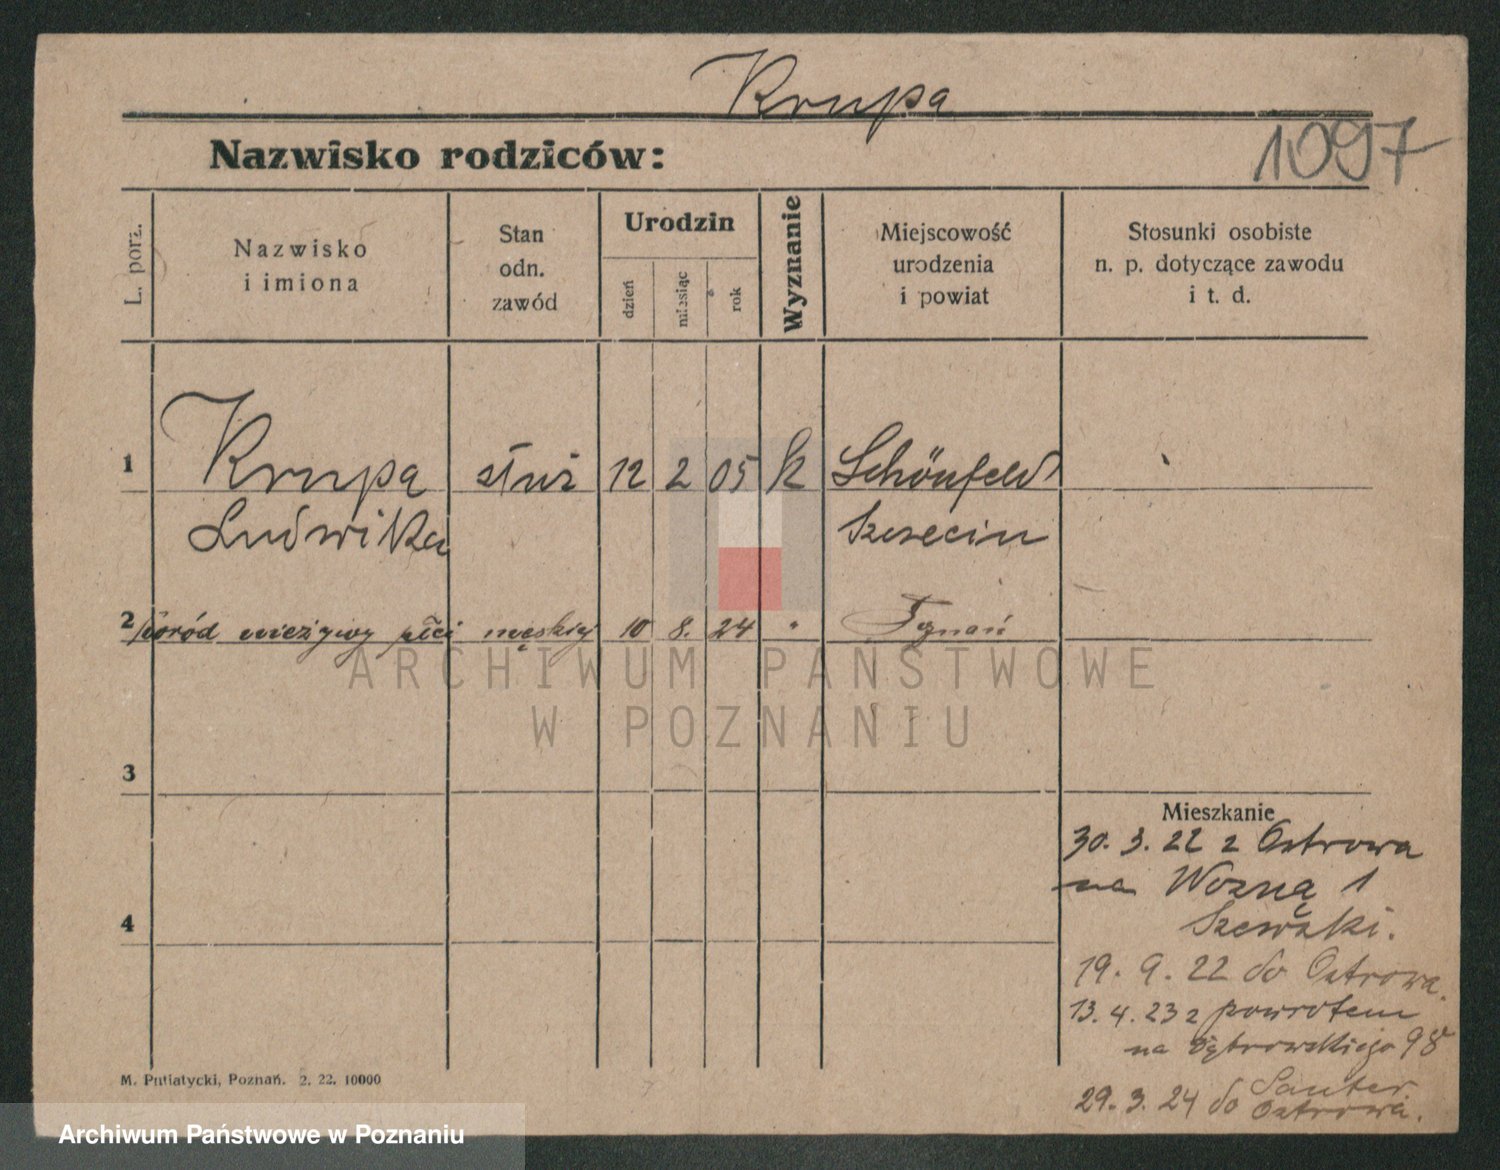 Krupa
1097
Nazwisko rodziców:
L. porz.
Nazwisko
i imiona
Stan
odn.
zawód
Urodzin
dzień
miesiąc
rok
Wyznanie
Miejscowość
urodzenia
i powiat
Stosunki osobiste
n. p. dotyczące zawodu
i t. d.
1 Krupa służ 12 2 05 k Schönfeld
Ludwika Szczecin
2 poród nieżywy płci męskiej 10 8. 24 " Poznań
ARCHIWUM PAŃSTWOWE
W POZNANIU
3
Mieszkanie
30. 3. 22 z Ostrowa
na Wozną 1
4
19. 9. 22 do Ostrowa.
13. 4. 23 z powrotem
na Dąbrowskiego 98
29. 3. 24 do
Ostrowa.
M. Putiatycki, Poznań. 2. 22. 10000
Archiwum Państwowe w Poznaniu